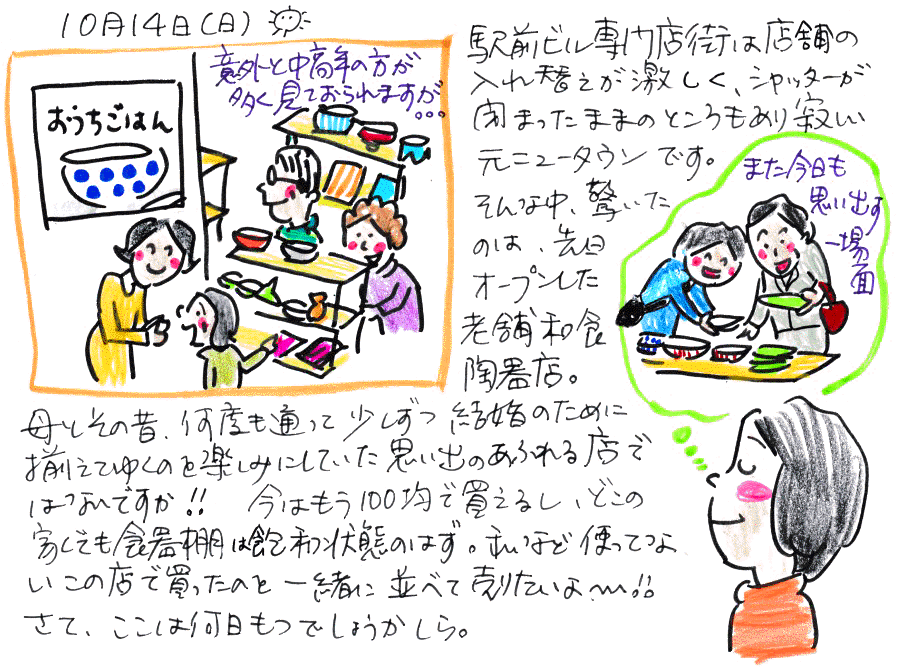 10月14日(日)
意外と中高年の方が
多く見ておられますが…
おうちごはん
駅前ビル専門店街は店舗の
入れ替えが激しく、シャッターが
閉まったままのところもあり寂しい
元ニュータウンです。
そんな中、驚いた
のは、先日
オープンした
老舗和食
陶器店。
また今日も
思い出す
一場面
母とその昔、何度も通って少しずつ結婚のために
揃えてゆくのを楽しみにしていた思い出のあふれる店で
はないですか!! 今はもう100均で買えるし、どこの
家でも食器棚は飽和状態のはず。私など使ってな
いこの店で買ったのと一緒に並べて売りたいよ〜!!
さて、ここは何日もつでしょうかしら。